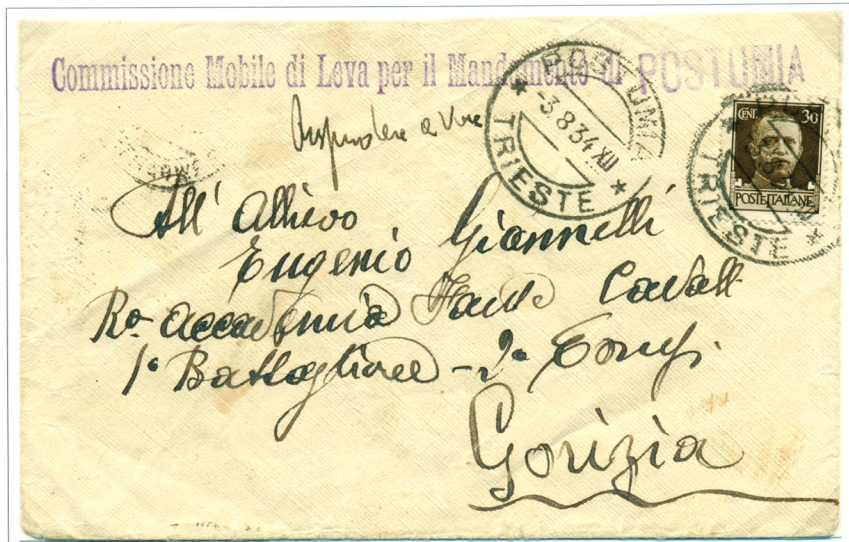 Commissione Mobile di Leva per il Mandamento di POSTUMIA
POSTUMIA
-3.8.34 XII
TRIESTE
CENT. 30
POSTE ITALIANE
TRIESTE
All' Allievo
Eugenio Giannelli
Ra. Accademia Fant. Cavall
1° Battaglione - 2a Comp.
Gorizia